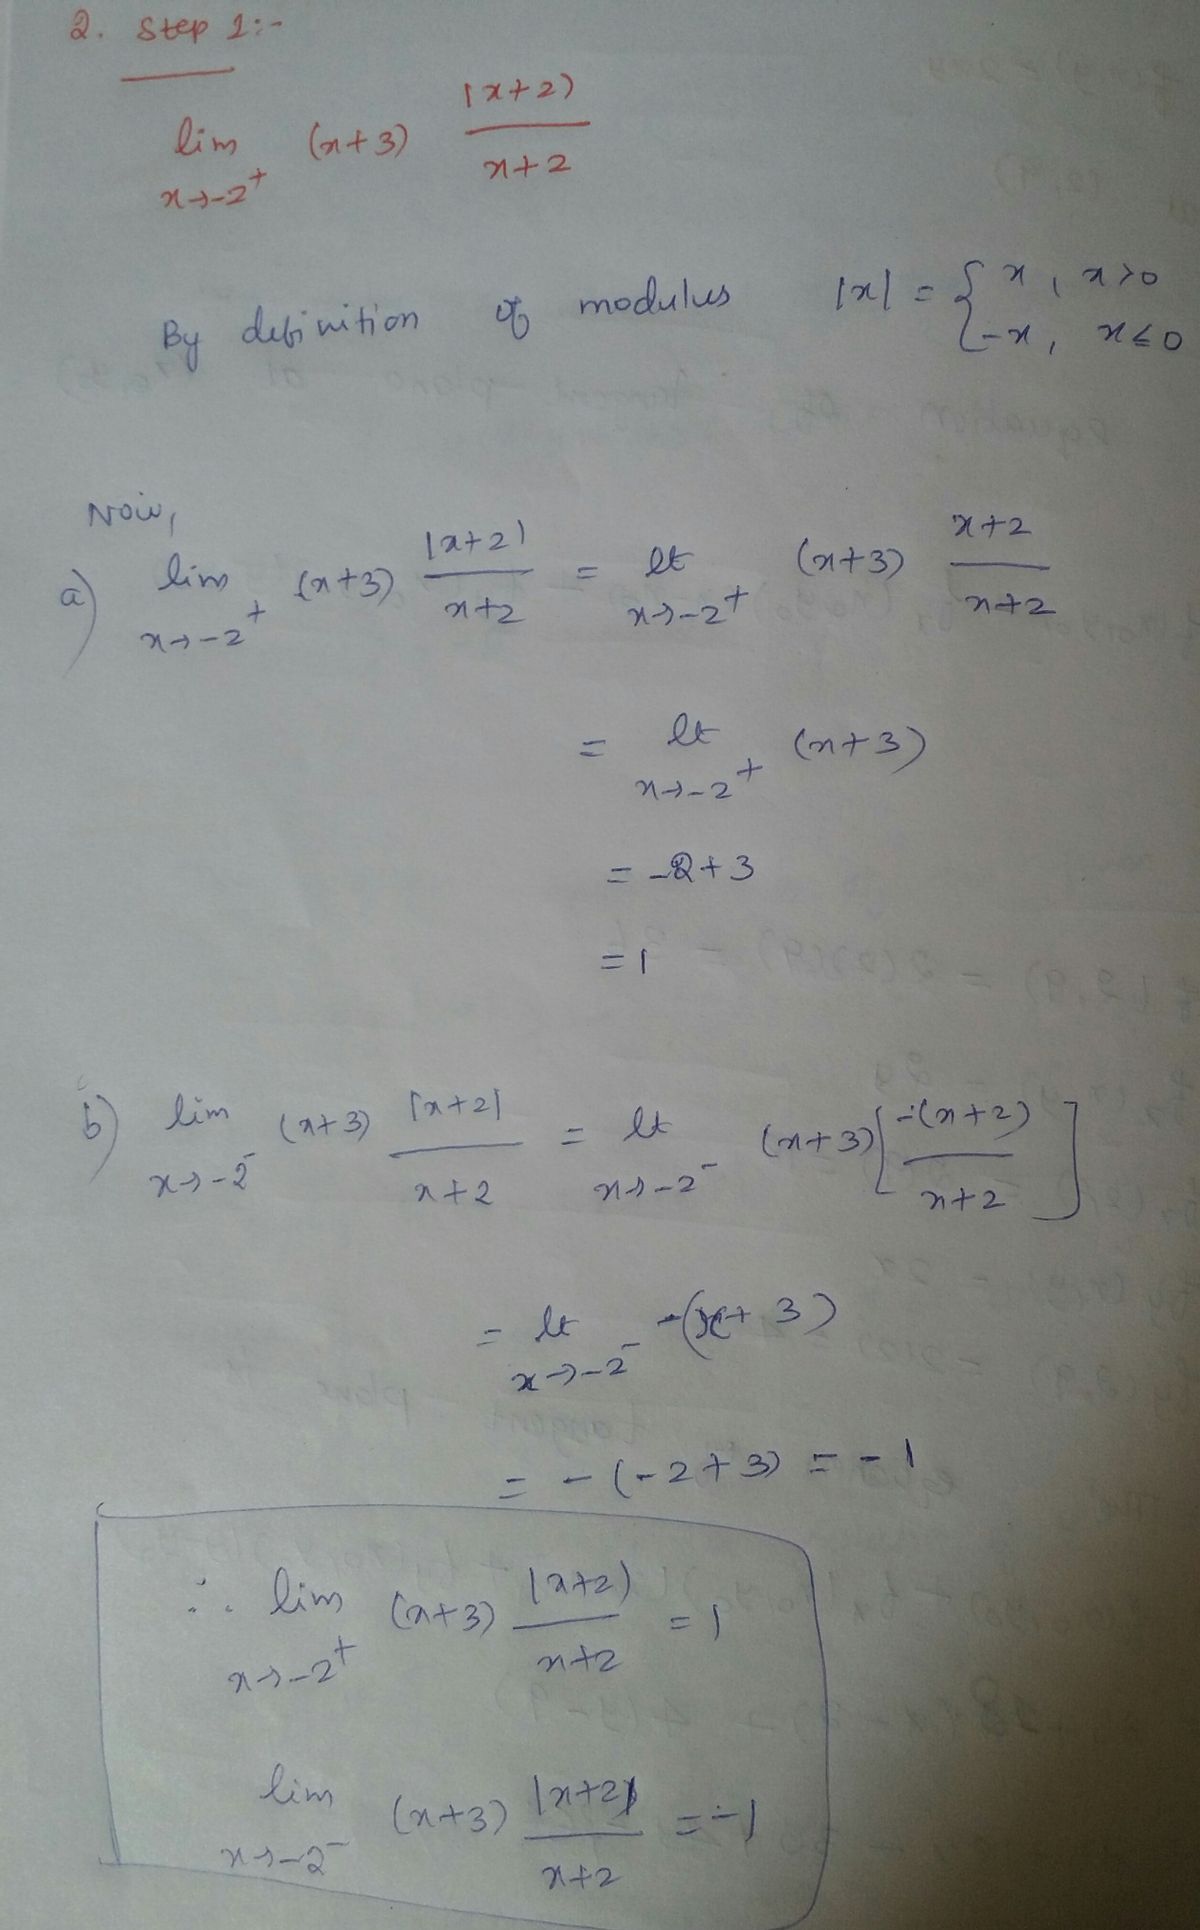 2. Step 1:-
lim x→-2⁺ (x+3) |x+2)/x+2
By definition of modulus |x| = { x, x>0
-x, x≤0
Now,
a) lim x→-2⁺ (x+3) |x+2|/x+2 = lt x→-2⁺ (x+3) x+2/x+2
= lt x→-2⁺ (x+3)
= -2+3
= 1
b) lim x→-2⁻ (x+3) |x+2|/x+2 = lt x→-2⁻ (x+3) [-(x+2)/x+2]
= lt x→-2⁻ -(x+3)
= -(-2+3) = -1
∴ lim x→-2⁺ (x+3) |x+2)/x+2 = 1
lim x→-2⁻ (x+3) |x+2|/x+2 = -1